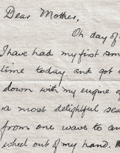 Dear Mother,
Oh day of
I have had my first
time today and got
down with my engine
a most delightful
from one wave to an
sched out of my hand.